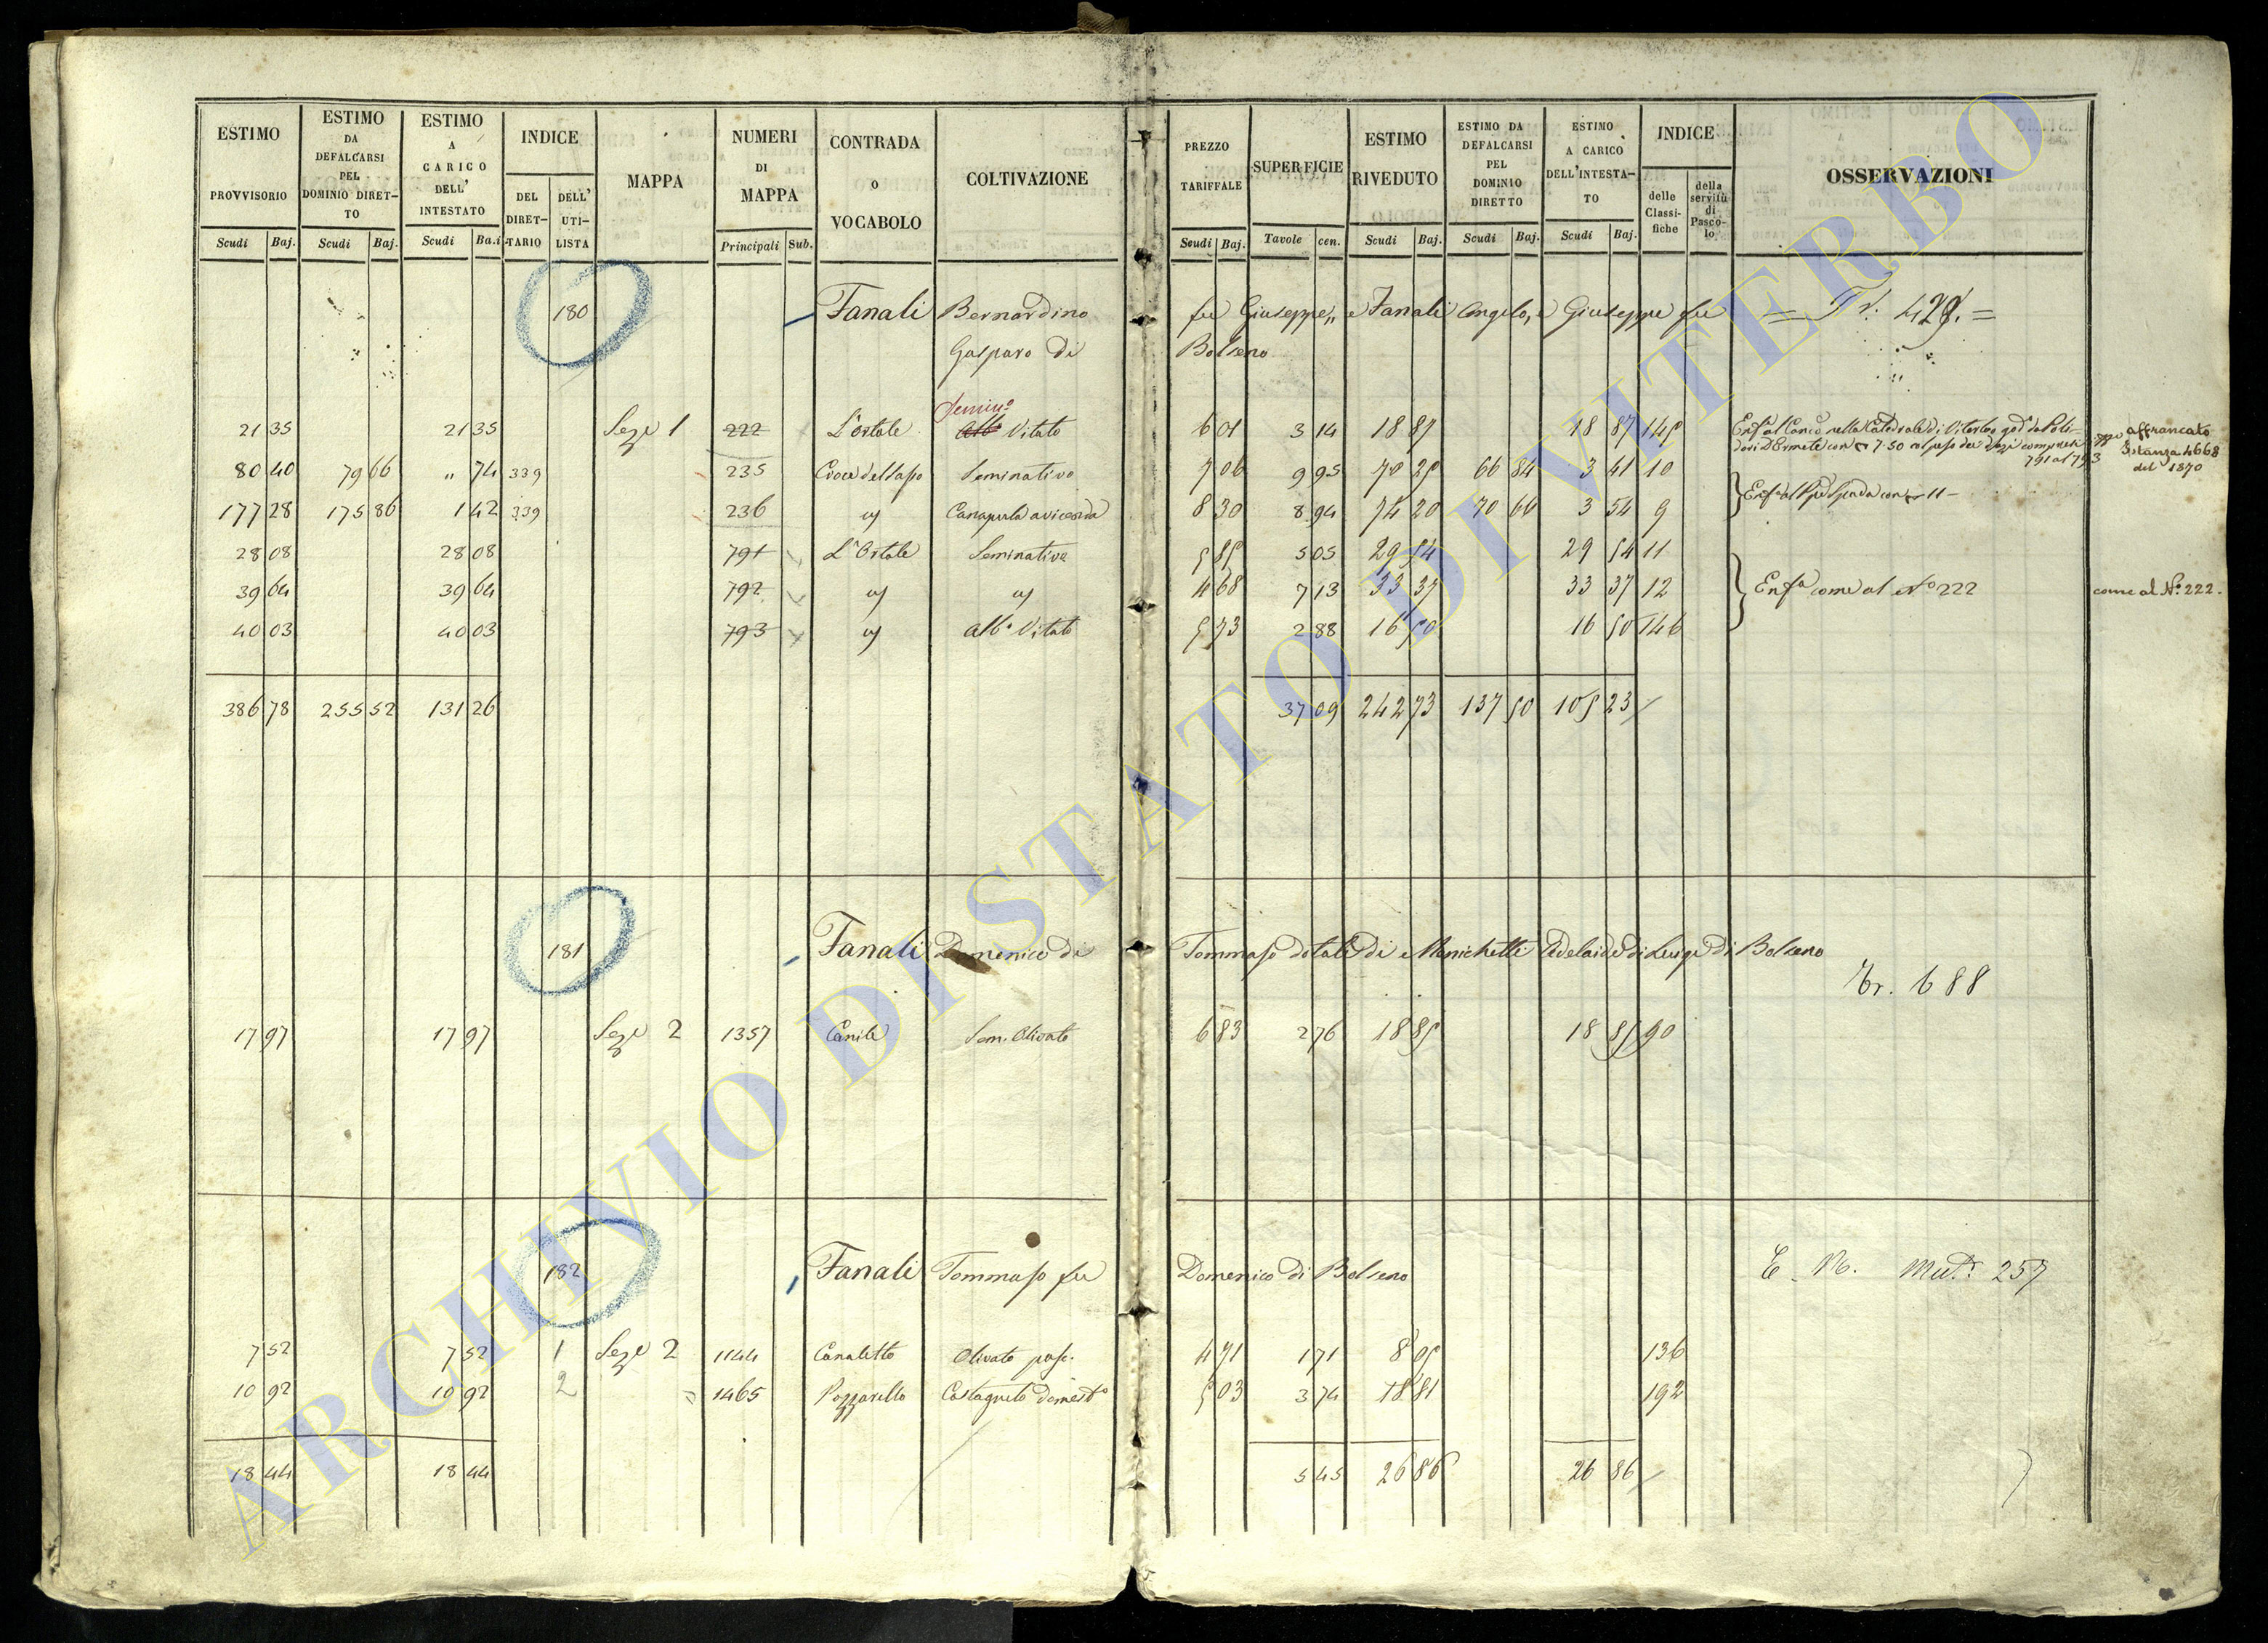 ESTIMO PROVVISORIO Scudi Baj.
ESTIMO DA DEFALCARSI PEL DOMINIO DIRET-TO Scudi Baj.
ESTIMO A CARICO DELL' INTESTATO Scudi Ba.i
INDICE DEL DIRET-TARIO DELL' UTI-LISTA
MAPPA
NUMERI DI MAPPA Principali Sub.
CONTRADA O VOCABOLO
COLTIVAZIONE
PREZZO TARIFFALE Scudi Baj.
SUPERFICIE Tavole cen.
ESTIMO RIVEDUTO Scudi Baj.
ESTIMO DA DEFALCARSI PEL DOMINIO DIRETTO Scudi Baj.
ESTIMO A CARICO DELL'INTESTA-TO Scudi Baj.
INDICE delle Classi-fiche della servitù di Pasco-lo
OSSERVAZIONI
180 Fanali Bernardino fu Giuseppe, e Fanali Angelo, e Giuseppe fu = Tr. 429. =
Gasparo di Bolseno
21 35 21 35 Seze 1 222 L'Ortale Vitato 6 01 3 14 18 87 18 87 145
affrancato
Istanza 4668
del 1870
791 al 793
80 40 79 66 " 74 339 235 Seminativo 7 06 9 95 70 25 66 84 3 41 10
177 28 175 86 1 42 339 236 8 30 8 94 74 20 70 66 3 54 9
28 08 28 08 791 L'Ortale Seminativo 5 85 5 05 29 54 29 54 11
39 64 39 64 792 4 68 7 13 33 37 33 37 12 Enfa come al No 222 come al No. 222.
40 03 40 03 793 Alb. Vitato 5 73 2 88 16 50 16 50 146
386 78 255 52 131 26 37 09 242 73 137 50 105 23
181 Fanali Domenico di Tommaso dotale di Menichetti Adelaide di Luigi di Bolseno
Tr. 688
17 97 17 97 Seze 2 1357 Canile Sem. Olivato 6 83 2 76 18 85 18 85 90
182 Fanali Tommaso fu Domenico di Bolseno Mut. 257
7 52 7 52 1 Seze 2 1144 Canaletto Olivato pasc. 4 71 1 71 8 05 136
10 92 10 92 2 1465 Pozzarello Castagneto domesto 5 03 3 74 18 81 192
18 44 18 44 5 45 26 86 26 86
ARCHIVIO DI STATO DI VITERBO